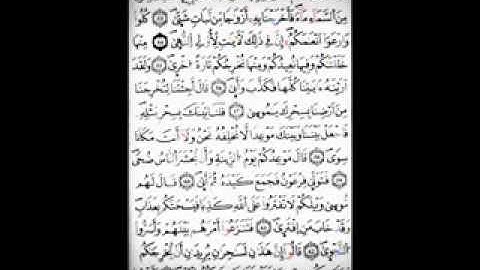 مِنَ ٱلسَّمَآءِ مَآءً فَأَخْرَجْنَا بِهِۦٓ أَزْوَٰجًا مِّن نَّبَاتٍ شَتَّىٰ ٥٣ كُلُوا۟
وَٱرْعَوْا۟ أَنْعَٰمَكُمْ إِنَّ فِى ذَٰلِكَ لَءَايَٰتٍ لِّأُو۟لِى ٱلنُّهَىٰ ٥٤ مِنْهَا
خَلَقْنَٰكُمْ وَفِيهَا نُعِيدُكُمْ وَمِنْهَا نُخْرِجُكُمْ تَارَةً أُخْرَىٰ ٥٥ وَلَقَدْ
أَرَيْنَٰهُ ءَايَٰتِنَا كُلَّهَا فَكَذَّبَ وَأَبَىٰ ٥٦ قَالَ أَجِئْتَنَا لِتُخْرِجَنَا
مِنْ أَرْضِنَا بِسِحْرِكَ يَٰمُوسَىٰ ٥٧ فَلَنَأْتِيَنَّكَ بِسِحْرٍ مِّثْلِهِۦ
فَٱجْعَلْ بَيْنَنَا وَبَيْنَكَ مَوْعِدًا لَّا نُخْلِفُهُۥ نَحْنُ وَلَآ أَنتَ مَكَانًا
سُوًى ٥٨ قَالَ مَوْعِدُكُمْ يَوْمُ ٱلزِّينَةِ وَأَن يُحْشَرَ ٱلنَّاسُ ضُحًى
٥٩ فَتَوَلَّىٰ فِرْعَوْنُ فَجَمَعَ كَيْدَهُۥ ثُمَّ أَتَىٰ ٦٠ قَالَ لَهُم
مُّوسَىٰ وَيْلَكُمْ لَا تَفْتَرُوا۟ عَلَى ٱللَّهِ كَذِبًا فَيُسْحِتَكُم بِعَذَابٍ
وَقَدْ خَابَ مَنِ ٱفْتَرَىٰ ٦١ فَتَنَٰزَعُوٓا۟ أَمْرَهُم بَيْنَهُمْ وَأَسَرُّوا۟
ٱلنَّجْوَىٰ ٦٢ قَالُوٓا۟ إِنْ هَٰذَٰنِ لَسَٰحِرَٰنِ يُرِيدَانِ أَن يُخْرِجَاكُم